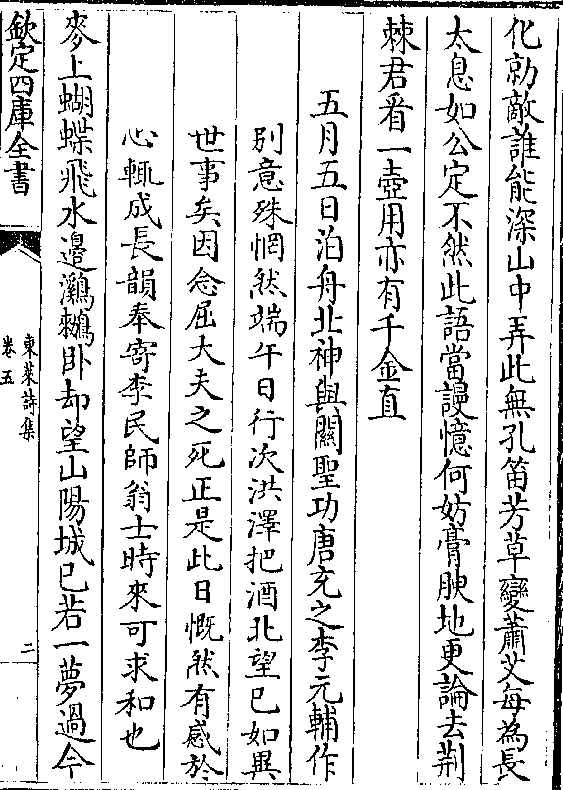 化勍敵誰能深山中弄此無孔笛芳草變蕭艾每為長
太息如公定不然此語當謾憶何妨膏腴地更論去荆
棘君看一壺用亦有千金直
五月五日泊舟北神與闗聖功唐充之李元輔作
别意殊惘然端午日行次洪澤把酒北望已如異
世事矣因念屈大夫之死正是此日慨然有感於
心輒成長韻奉寄李民師翁士時來可求和也
麥上蝴蝶飛水邊鸂鶒卧却望山陽城已若一夢過今
欽定四庫全書
東萊詩集
卷五
二